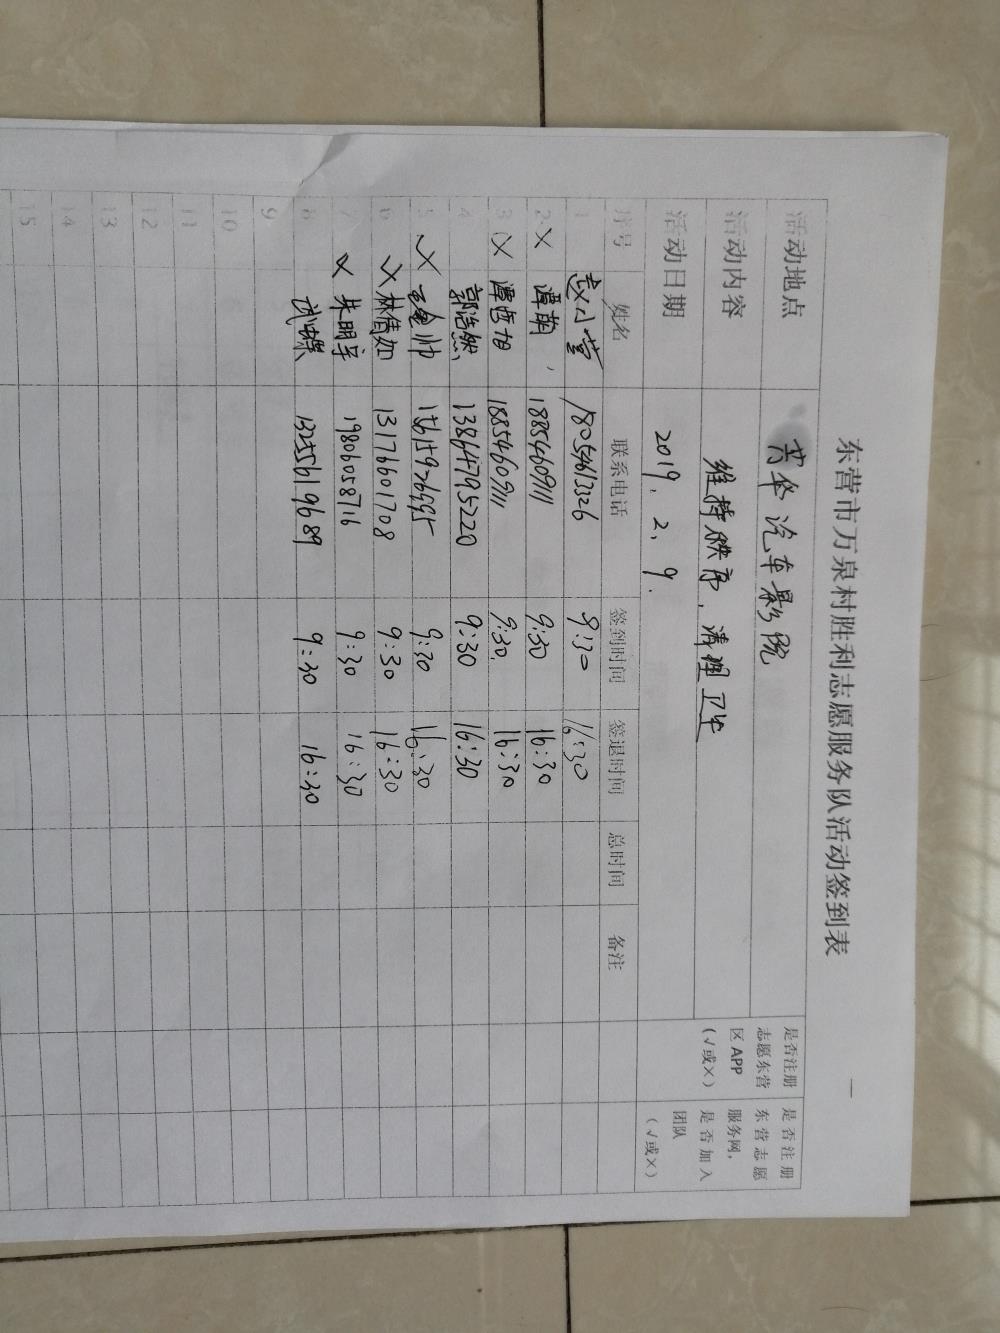 东营市万泉村胜利志愿服务队活动签到表
活动地点 汽车影院
活动内容 维持秩序、清理卫生
活动日期 2019.2.9.
是否注册志愿东营区APP(√或X)
是否注册东营志愿服务网,是否加入团队(√或X)
序号 姓名 联系电话 签到时间 签退时间 总时间 备注
1 赵小营 18054613326 9:30 16:30
2 X 谭韩 18854609111 9:30 16:30
3 X 谭 18854609111 9:30 16:30
4 郭浩然 13864795220 9:30 16:30
5 X 帅 9:30 16:30
6 X 林倩如 13176601708 9:30 16:30
7 X 朱明宇 19806058716 9:30 16:30
8 武 13255619689 9:30 16:30
9
10
11
12
13
14
15